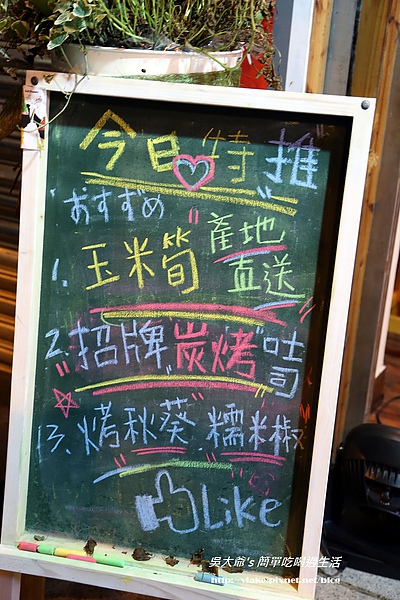 今日特推
おすすめ
1. 玉米筍 "產地直送
2. "招牌炭烤"吐司
3. 烤秋葵" 糯米椒
Like
吳大爺's 簡單吃喝過生活